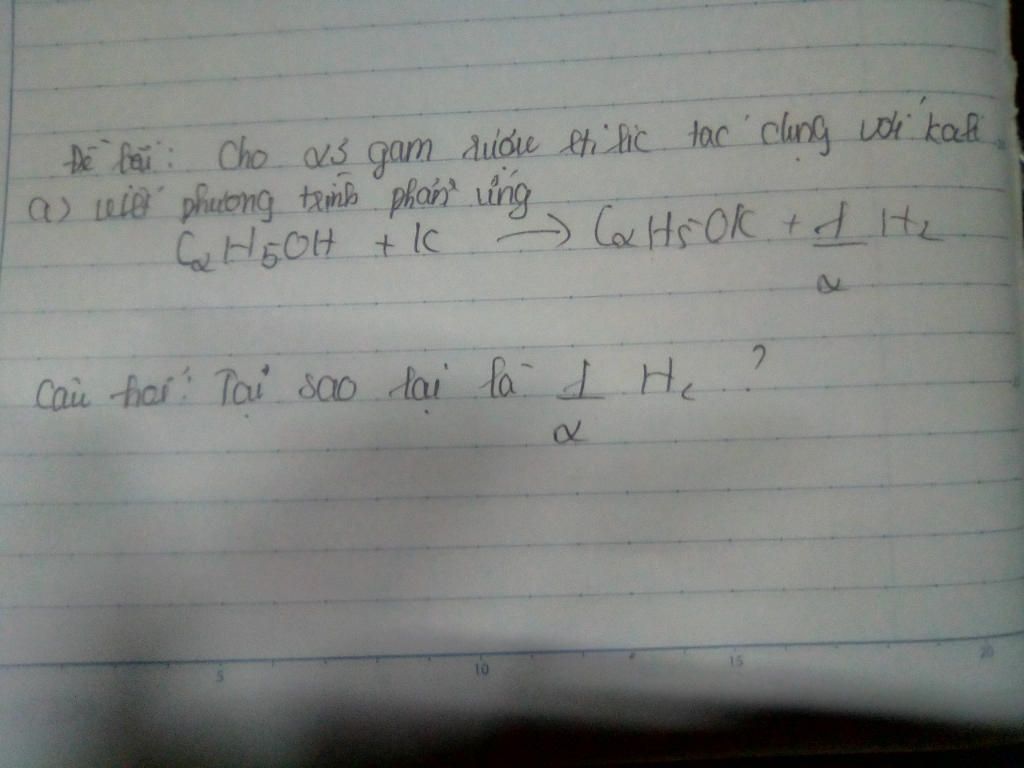 Đề bài: Cho 23 gam rượu etilic tác dụng với kali
a) viết phương trình phản ứng
C2H5OH + K → C2H5OK + 1/2 H2
Câu hỏi: Tại sao lại là 1/2 H2 ?
5 10 15 20